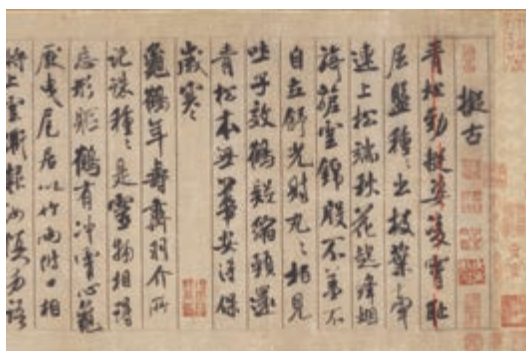 擬古
青松勁挺姿凌霄耻
屈盤種〻出枝葉牽
連上松端秋花起絳烟
旖旎雲錦殷不羞不
自立舒光射丸〻栢見
吐子效鶴疑縮頸還
青松本無華安得保
歲寒
龜鶴年壽齊羽介所
託殊種〻是靈物相得
忘形軀鶴有冲霄心龜
厭曳尾居以竹兩附口相
將上雲衢報汝慎勿語